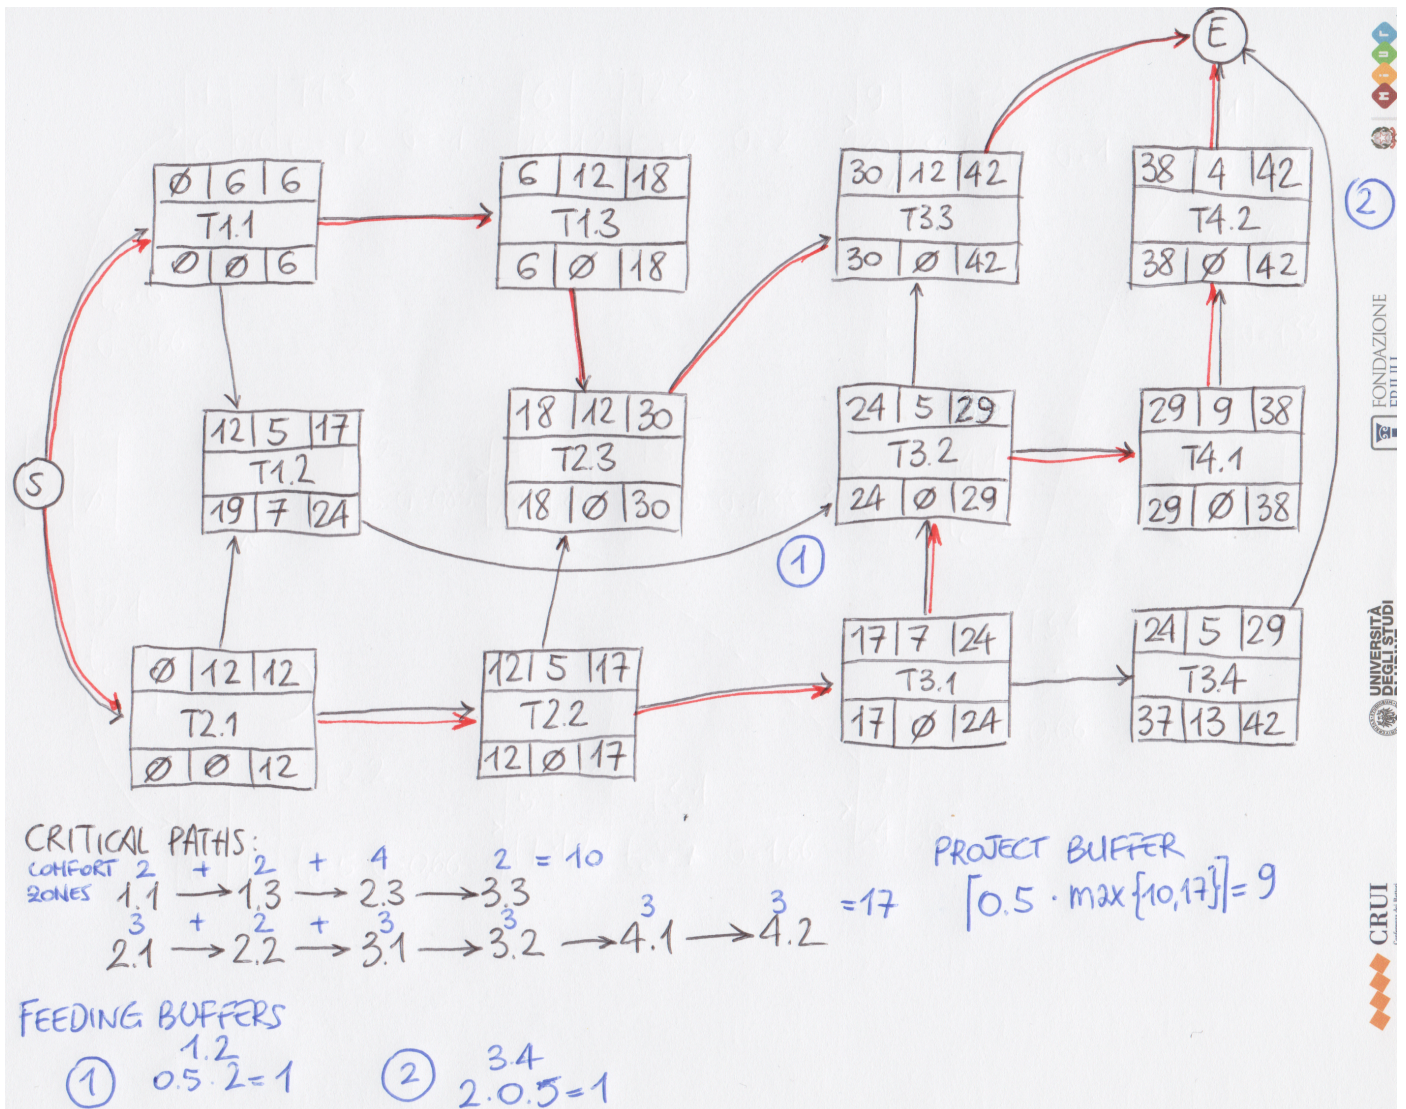 E
Ø 6 6
T1.1
Ø Ø 6
6 12 18
T1.3
6 Ø 18
30 12 42
T3.3
30 Ø 42
38 4 42
T4.2
38 Ø 42
2
12 5 17
T1.2
19 7 24
18 12 30
T2.3
18 Ø 30
24 5 29
T3.2
24 Ø 29
29 9 38
T4.1
29 Ø 38
S
1
Ø 12 12
T2.1
Ø Ø 12
12 5 17
T2.2
12 Ø 17
17 7 24
T3.1
17 Ø 24
24 5 29
T3.4
37 13 42
CRITICAL PATHS:
COMFORT ZONES 2 + 2 + 4 2 = 10
1.1 → 1.3 → 2.3 → 3.3
3 + 2 + 3 3 3 3 = 17
2.1 → 2.2 → 3.1 → 3.2 → 4.1 → 4.2
PROJECT BUFFER
⌈0.5 · max{10,17}⌉ = 9
FEEDING BUFFERS
1 1.2
0.5 · 2 = 1
2 3.4
2 · 0.5 = 1
MiUr
FONDAZIONE
UNIVERSITÀ
DEGLI STUDI
CRUI